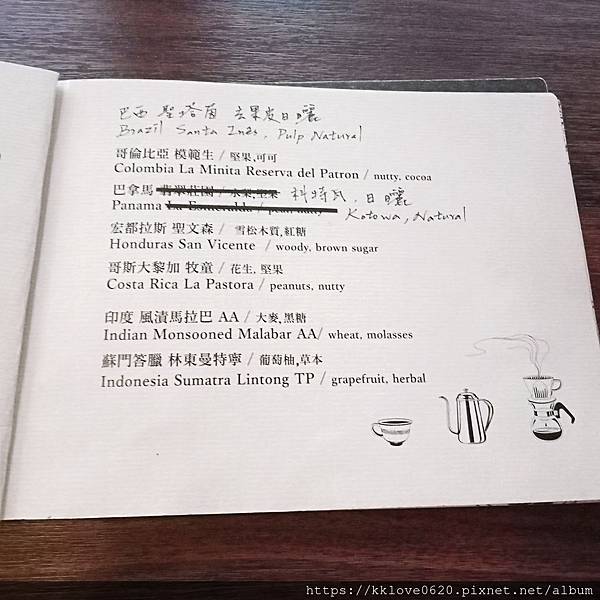 巴西 聖塔茵 去果皮日曬
Brazil Santa Inês, Pulp Natural
哥倫比亞 模範生 / 堅果,可可
Colombia La Minita Reserva del Patron / nutty, cocoa
巴拿馬 翡翠莊園 / 水果,堅果 科特瓦, 日曬
Panama La Esmeralda / pear, nutty Kotowa, Natural
宏都拉斯 聖文森 / 雪松木質,紅糖
Honduras San Vicente / woody, brown sugar
哥斯大黎加 牧童 / 花生, 堅果
Costa Rica La Pastora / peanuts, nutty
印度 風漬馬拉巴 AA / 大麥,黑糖
Indian Monsooned Malabar AA/ wheat, molasses
蘇門答臘 林東曼特寧 / 葡萄柚,草本
Indonesia Sumatra Lintong TP / grapefruit, herbal
https://kklove0620.pixnet.net/album